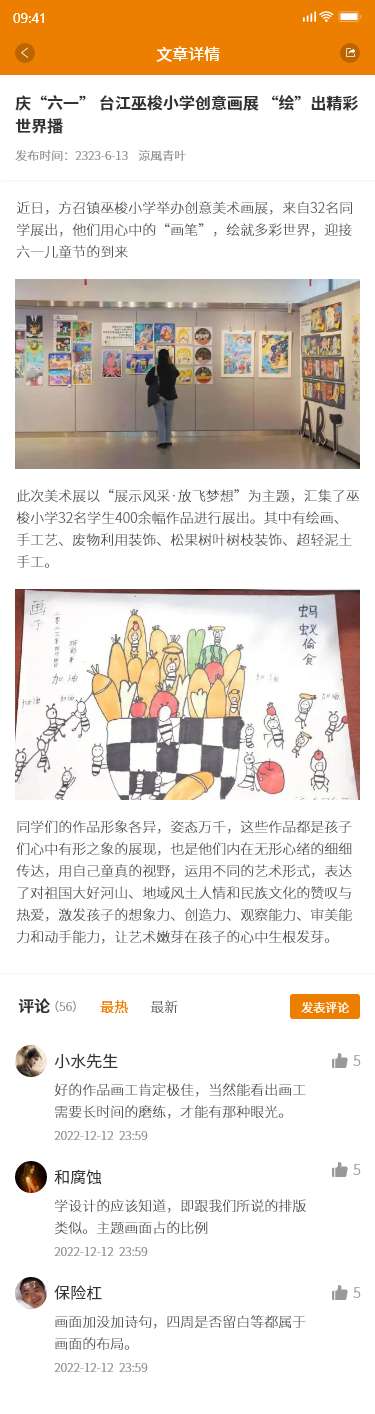 09:41
文章详情
庆“六一” 台江巫梭小学创意画展 “绘”出精彩
世界播
发布时间：2323-6-13 涼風青叶
近日，方召镇巫梭小学举办创意美术画展，来自32名同
学展出，他们用心中的“画笔”，绘就多彩世界，迎接
六一儿童节的到来
ART
此次美术展以“展示风采·放飞梦想”为主题，汇集了巫
梭小学32名学生400余幅作品进行展出。其中有绘画、
手工艺、废物利用装饰、松果树叶树枝装饰、超轻泥土
手工。
蚂蚁偷食
加油
加油
加油
加油
加油
同学们的作品形象各异，姿态万千，这些作品都是孩子
们心中有形之象的展现，也是他们内在无形心绪的细细
传达，用自己童真的视野，运用不同的艺术形式，表达
了对祖国大好河山、地域风土人情和民族文化的赞叹与
热爱，激发孩子的想象力、创造力、观察能力、审美能
力和动手能力，让艺术嫩芽在孩子的心中生根发芽。
评论 (56) 最热 最新 发表评论
小水先生 5
好的作品画工肯定极佳，当然能看出画工
需要长时间的磨练，才能有那种眼光。
2022-12-12 23:59
和腐蚀 5
学设计的应该知道，即跟我们所说的排版
类似。主题画面占的比例
2022-12-12 23:59
保险杠 5
画面加没加诗句，四周是否留白等都属于
画面的布局。
2022-12-12 23:59